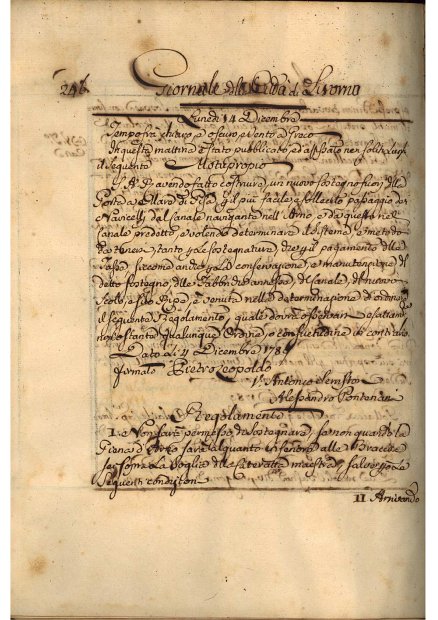 246 Giornale della Città di Livorno
Lunedì 14 Decembre
Tempo fra chiaro e oscuro, e vento a Greco
In questa mattina è stato pubblicato, ed affisso nei soliti Luoghi
il seguente Motuproprio
S. A. R. avendo fatto costruire un nuovo sostegno fuori della
Porta a Mare di Pisa per il più facile, e sollecito passaggio dei
Navicelli dal Canale navigante nell'Arno, e da questo nel
Canale predetto, e volendo determinare il sistema, e metodo
da tenersi, tanto per le sostegnature, che per il pagamento della
Tassa, siccome anche per la conservazione, e manutenzione del
detto sostegno, delle Fabbriche annesse, del Canale, del nuovo
Scolo, e sue Ripe, è venuta nella determinazione di ordinare
il seguente Regolamento, quale dovrà osservarsi esattamente
non ostante qualunque Ordine, o consuetudine in contrario
Dato li 11 Decembre 178
firmato Pietro Leopoldo
Vt. Antonio Serristori
Alessandro Pontenani
Regolamento
I. Non sarà permesso di sostegnare, se non quando la
Piena d'Arno sarà alquanto inferiore alle Braccia
sei sopra la Soglia della Cateratta maestra, salve però le
seguenti condizioni
II Arrivando